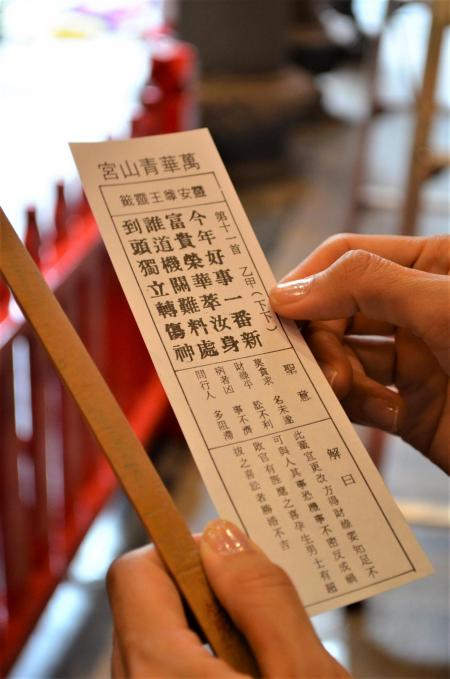 萬華青山宮
靈安尊王靈籤
第十一首 乙甲(下下)
今年好事一番新
富貴榮華萃汝身
誰道機關難料處
到頭獨立轉傷神
聖意
莫貪求 名未遂
財祿平 訟不利
病者凶 事不濟
問行人 多阻滯
解曰
此籤宜更改方得財祿要知足不
可與人其事恐機事不密反或禍
敗官有應之喜孕生男士有超
拔之喜訟者勝婚不吉